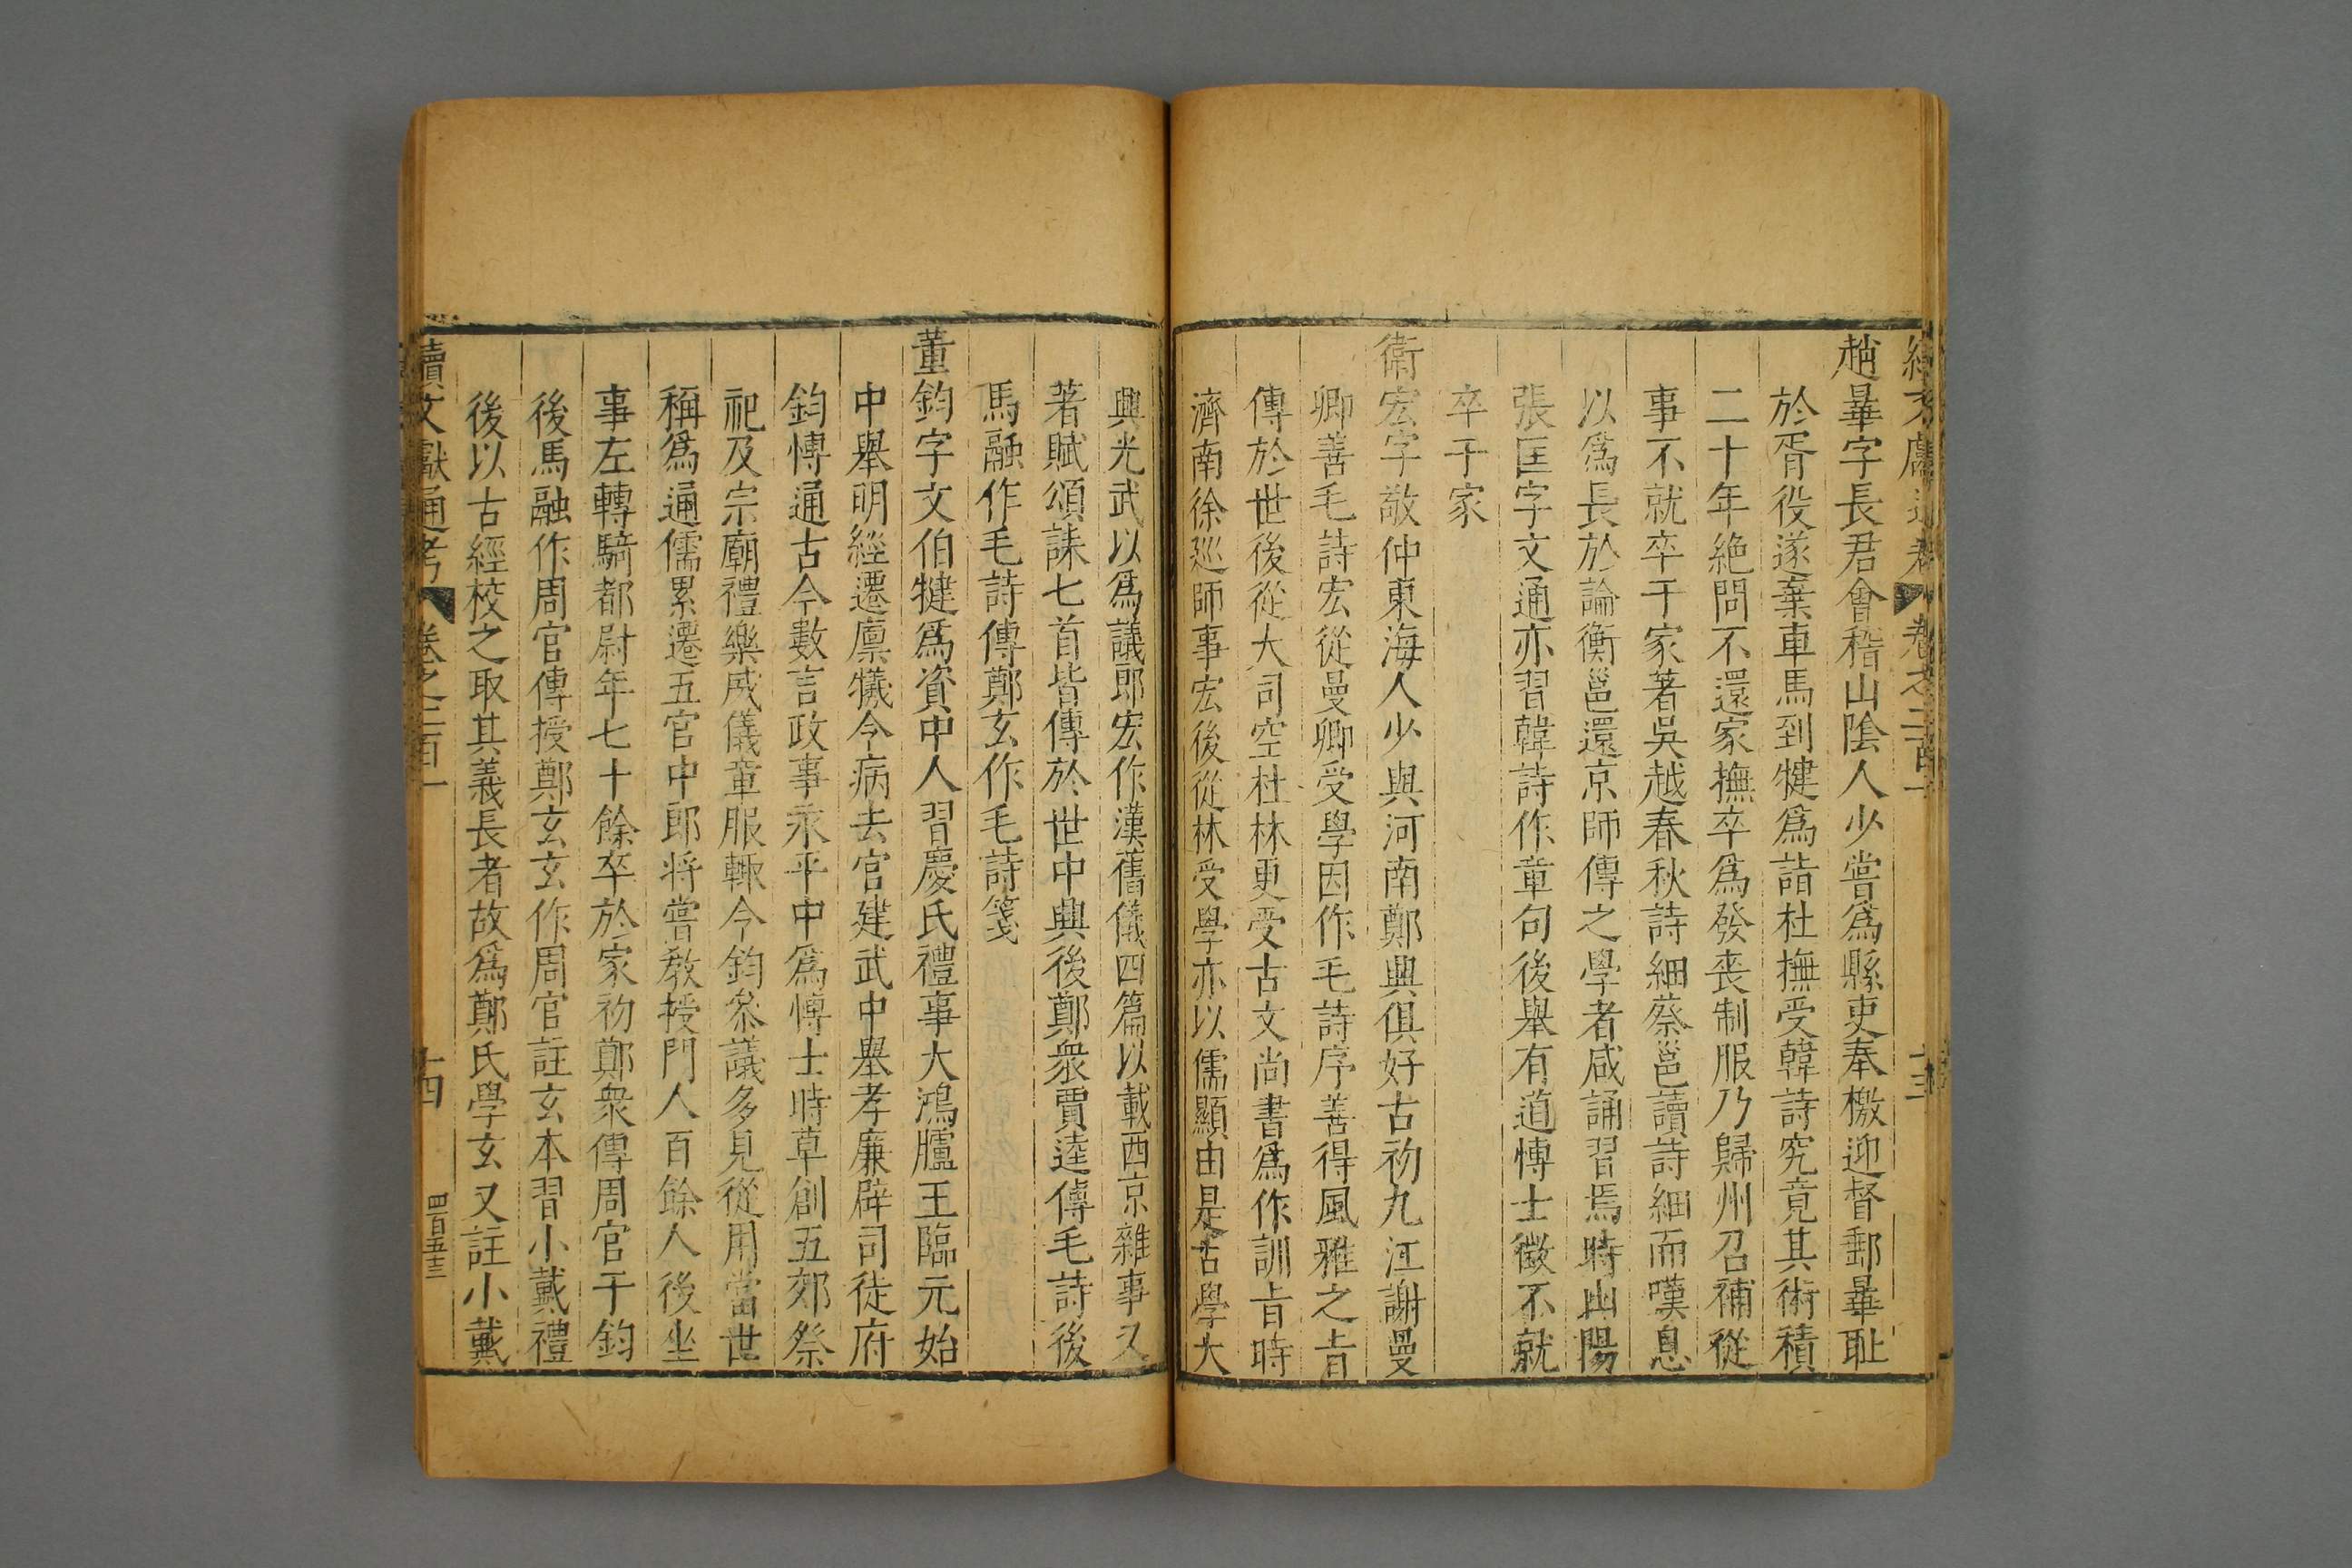 趙曅字長君會稽山陰人少嘗爲縣吏奉檄迎督郵曅耻
於胥役遂棄車馬到犍爲詣杜撫受韓詩究竟其術積
二十年絶問不還家撫卒爲發喪制服乃歸州召補從
事不就卒于家著吳越春秋詩細蔡邕讀詩細而嘆息
以爲長於論衡邕還京師傳之學者咸誦習焉時山陽
張匡字文通亦習韓詩作章句後舉有道博士徵不就
卒于家
衛宏字敬仲東海人少與河南鄭興俱好古初九江謝曼
卿善毛詩宏從曼卿受學因作毛詩序善得風雅之㫖
傳於世後從大司空杜林更受古文尚書爲作訓㫖時
濟南徐廵師事宏後從林受學亦以儒顯由是古學大
興光武以爲議郎宏作漢舊儀四篇以載西京雜事又
著賦頌誄七首皆傳於世中興後鄭衆賈逵傳毛詩後
馬融作毛詩傳鄭玄作毛詩箋
董鈞字文伯犍爲資中人習慶氏禮事大鴻臚王臨元始
中舉明經遷廪犧令病去官建武中舉孝廉辟司徒府
鈞博通古今數言政事永平中爲博士時草創五郊祭
祀及宗廟禮樂威儀章服輙令鈞叅議多見從用當世
稱爲通儒累遷五官中郎将嘗敎授門人百餘人後坐
事左轉騎都尉年七十餘卒於家初鄭衆傳周官于鈞
後馬融作周官傳授鄭玄玄作周官註玄本習小戴禮
後以古經校之取其義長者故爲鄭氏學玄又註小戴
續文獻通考 卷之二百一 十四 四百五三